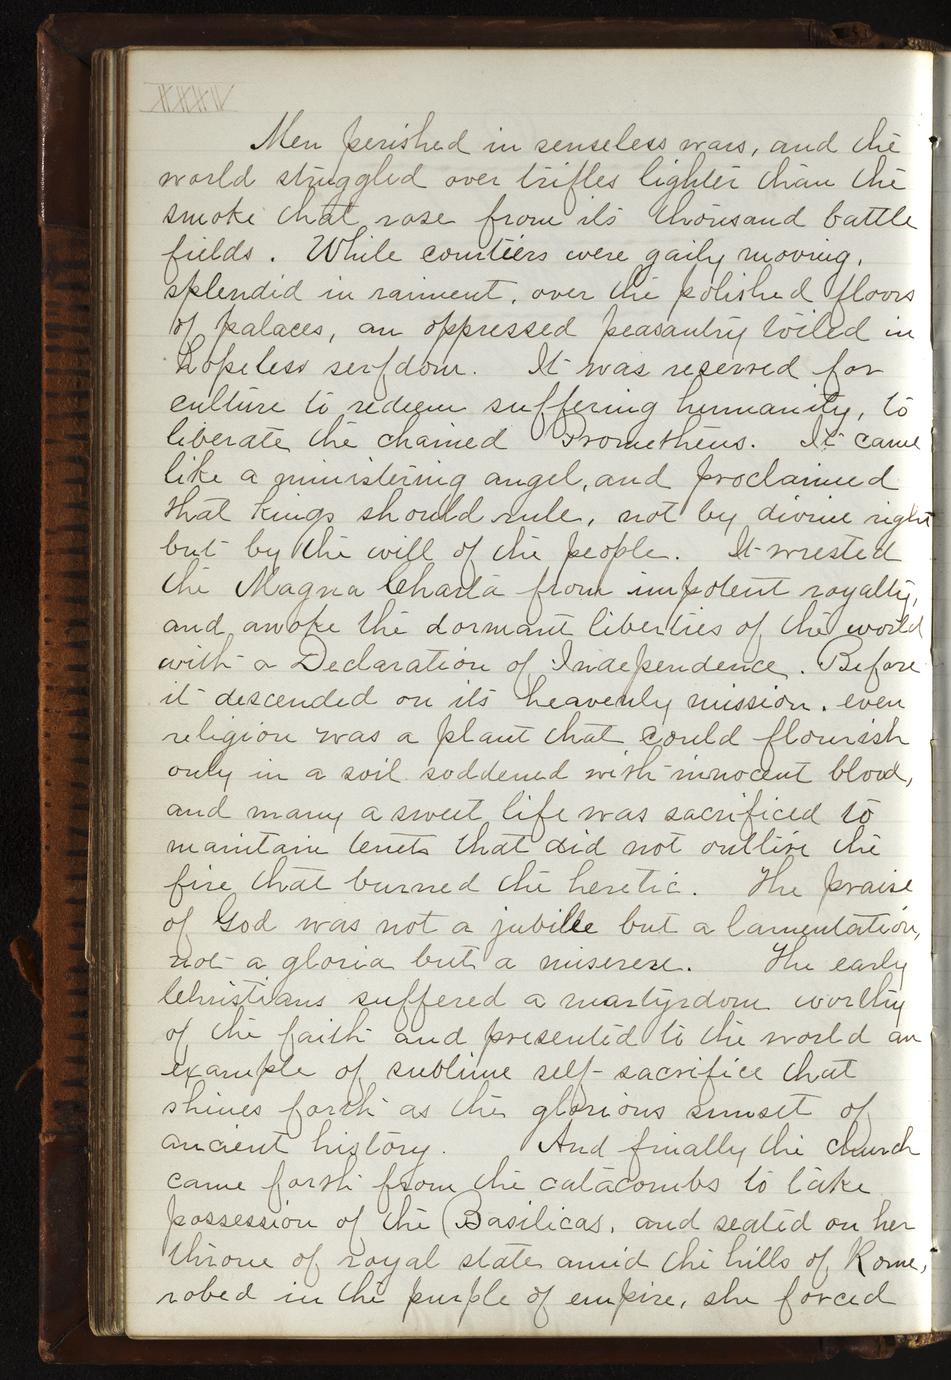 XXXIV
Men perished in senseless wars, and the
world struggled over trifles lighter than the
smoke that rose from its thousand battle
fields. While courtiers were gaily moving,
splendid in raiment, over the polished floors
of palaces, an oppressed peasantry toiled in
hopeless serfdom. It was reserved for
culture to redeem suffering humanity, to
liberate the chained Prometheus. It came
like a ministering angel, and proclaimed
that kings should rule, not by divine right
but by the will of the people. It wrested
the Magna Charta from impotent royalty,
and awoke the dormant liberties of the world
with a Declaration of Independence. Before
it descended on its heavenly mission, even
religion was a plant that could flourish
only in a soil soddened with innocent blood,
and many a sweet life was sacrificed to
maintain tenets that did not outlive the
fire that burned the heretic. The praise
of God was not a jubille but a lamentation,
not a gloria but a miserere. The early
Christians suffered a martyrdom worthy
of the faith and presented to the world an
example of sublime self-sacrifice that
shines forth as the glorious sunset of
ancient history. And finally the church
came forth from the catacombs to take
possession of the Basilicas, and seated on her
throne of royal state amid the hills of Rome,
robed in the purple of empire, she forced